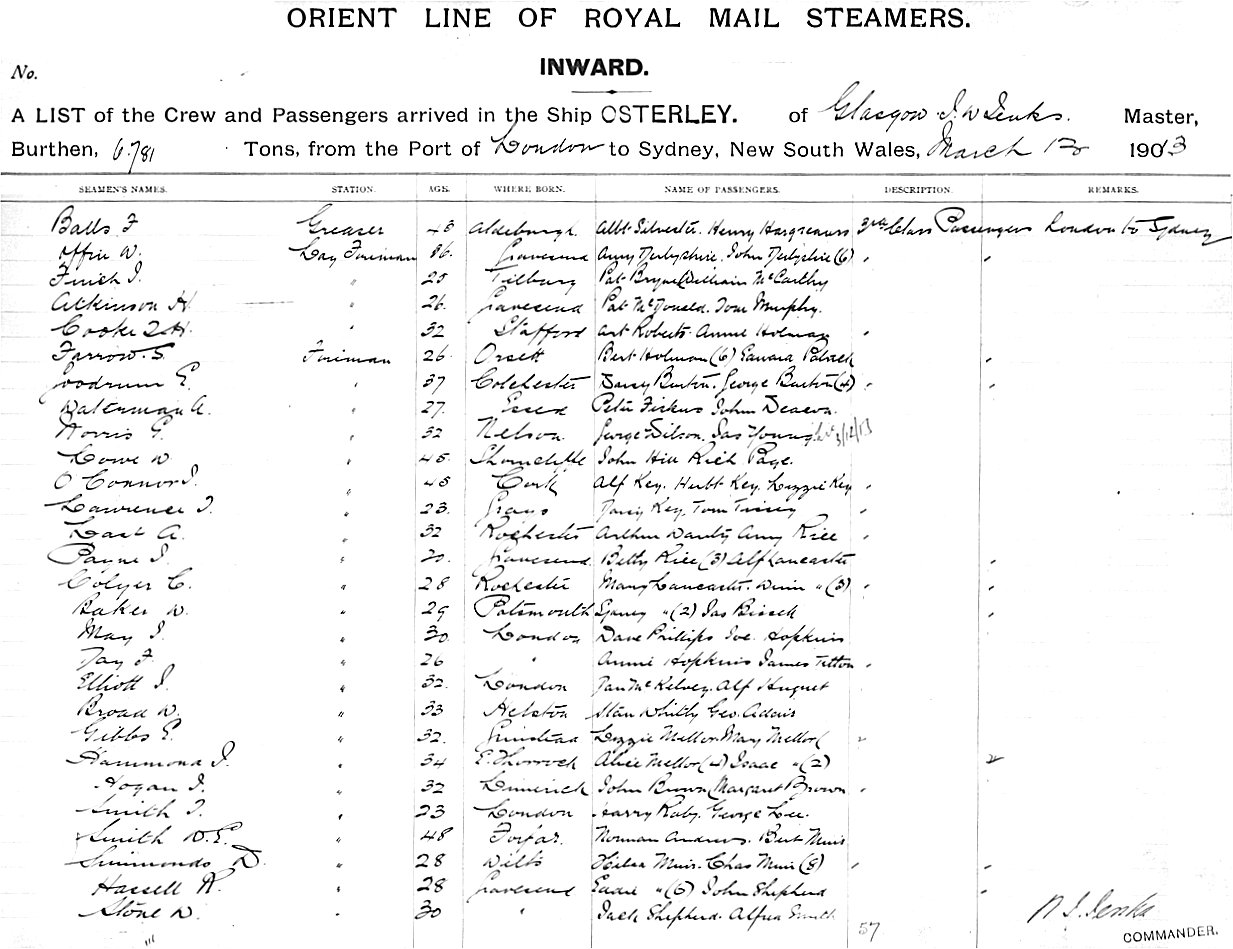 ORIENT LINE OF ROYAL MAIL STEAMERS.
INWARD.
No.
A LIST of the Crew and Passengers arrived in the Ship OSTERLEY. of Glasgow Jenks. Master,
Burthen, 6781 Tons, from the Port of London to Sydney, New South Wales, March 1903
SEAMEN'S NAMES. STATION. AGE. WHERE BORN. NAME OF PASSENGERS. DESCRIPTION. REMARKS.
Balls F Greaser Aldeburgh Albt Silvester. Henry Hargreaves 3rd Class Passengers London to Sydney
Offin W. Foreman Gravesend Amy Derbyshire. John Derbyshire (6) "
Finch J. " 25 Tilbury Pat Bryne William McCarthy
Atkinson H " 26 Gravesend Pat McDonald. Tom Murphy.
Cooke " 32 Stafford Art Roberts Annie Holman
Farrow. S Foreman 26 Orsett Bert Holman (6) Edward
Goodrum E. " 37 Colchester Daisy Burton. George Burton (4) "
Waterman A. " 27. Essex Peter John Deacon.
Norris G. " 32 Nelson George Wilson. Jas Young
Lowe W " 45 Shorncliffe John Hill Rich Page.
O'Connor J. " 45 Cork Alf Key. Hubt Key. Lizzie Key
Lawrence J. " 23. Grays Key. Tom
Last A. " 32 Rochester Arthur Amy Rice
Payne J. " Gravesend Betty Rice (3) Alf Lancaster
Colyer C. " 28 Rochester Mary Lancaster. " (3)
Baker W. " 29 Portsmouth Sydney " (2) Jas Bissell
May J. " 30. London Dave Phillips Joe. Hopkins
Tay F. 26 " Annie Hopkins James
Elliott J. " 32. London McKelvey. Alf Huguet
Broad W. " 33 Helston Stan Whitly Geo. Adair
Gibbs E. " 32. Lizzie Mellor. Mary Mellor
Hammond J. " 34 Alice Mellor (4) Isaac " (2)
Hogan J. " 32 Limerick John Brown Margaret Brown
Smith J. " 23 London Harry George Lee.
Smith W.E. " 48 Forfar. Norman Andrews. Bert Muir
Simmonds D. " 28 Wilts Helen Muir. Chas Muir (8)
Hassell R. " 28 Gravesend Eddie " (6) John Shepherd
Stone W. " 30 " Jack Shepherd. Alfred Smith
57
Jenks
COMMANDER.